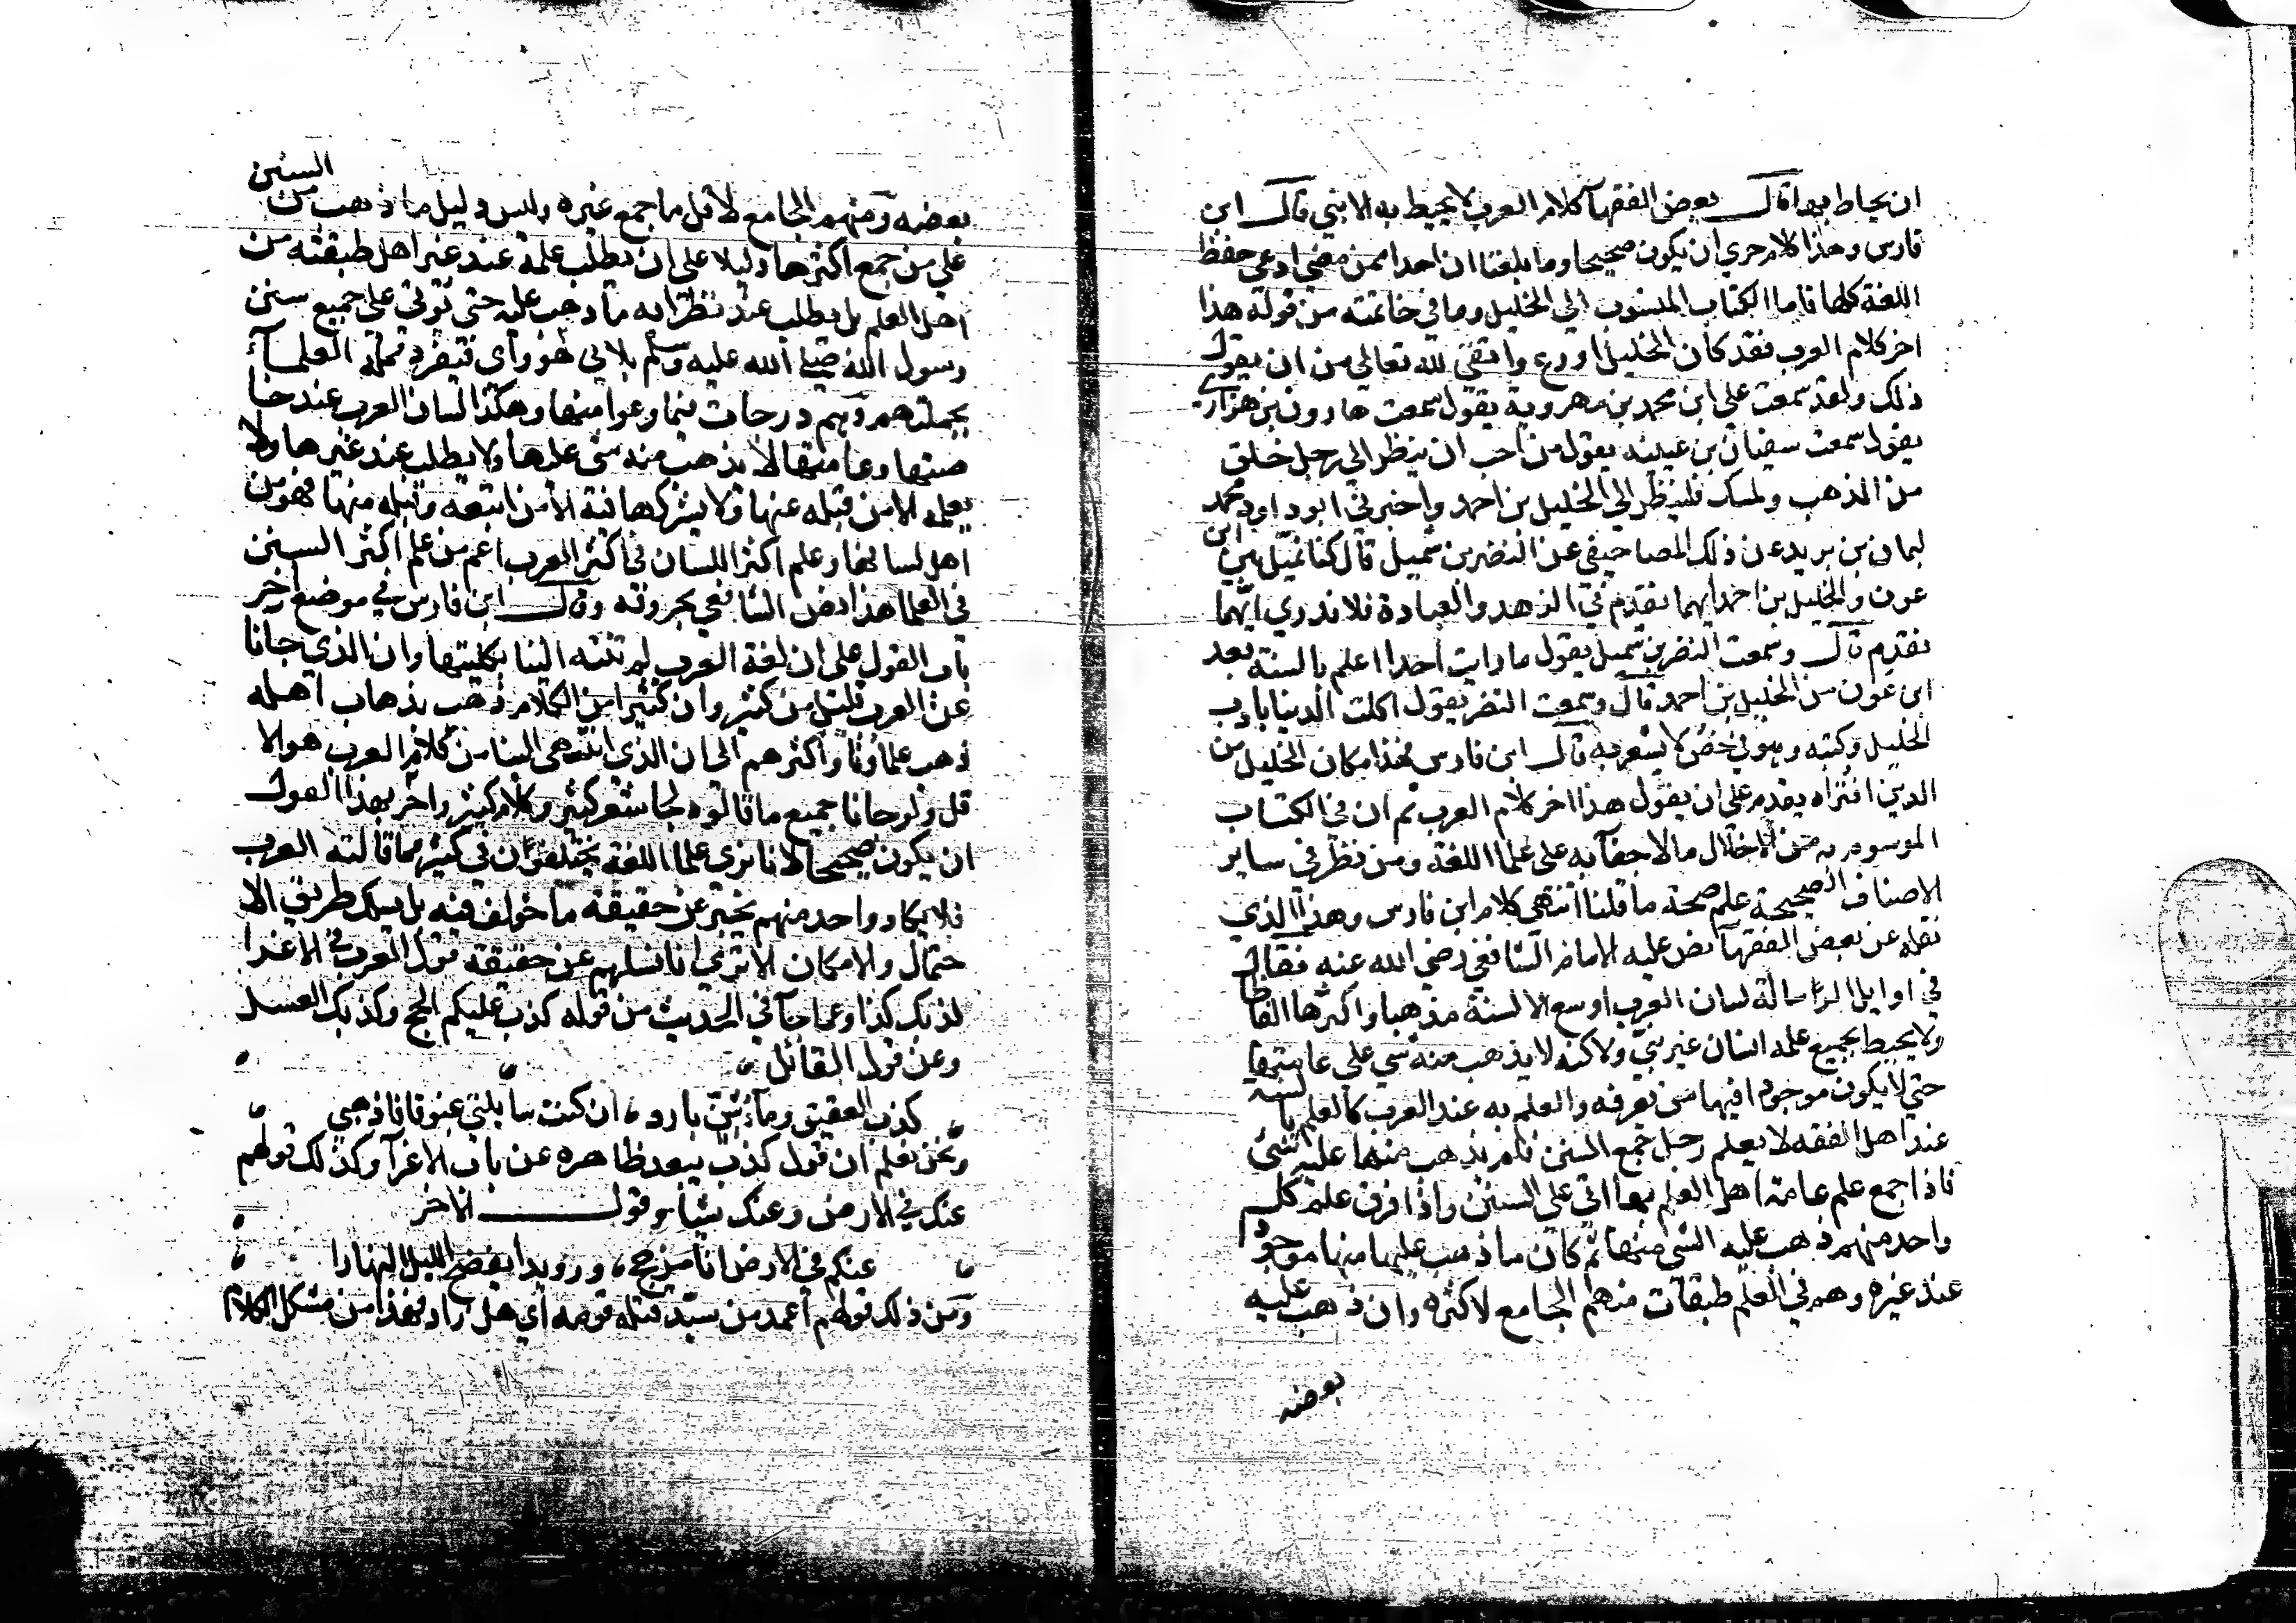 ان يحاط بها قال بعض الفقهآ كلام العرب لا يحيط به الا نبي قال ابن
فارس وهذا كلام حري ان يكون صحيحا وما بلغنا ان احدا ممن مضي ادعي حفظ
اللغة كلها فاما الكتاب المنسوب الي الخليل وما في خاتمته من قوله هذا
اخر كلام العرب فقد كان الخليل اورع واتقي لله تعالي من ان يقول
ذلك ولقد سمعت علي ابن محمد بن مهروية يقول سمعت هارون بن هزاري
يقول سمعت سفيان بن عيينه يقول من احب ان ينظر الي رجل خلق
من الذهب ولمسك فلينظر الي الخليل بن احمد واخبرني ابو داود محمد
ليمان بن يزيد عن ذلك المصاحيفي عن النضر بن شميل قال كنا نميل بين ابن
عون والخليل بن احمد ايهما نقدم في الزهد والعبادة فلا ندري ايهما
نقدم قال وسمعت النضر بن شميل يقول ما رايت احدا اعلم بالسنة بعد
ابن عون من الخليل بن احمد قال وسمعت النضر يقول اكلت الدنيا بادب
الخليل وكتبه وهو في خص لا يشعر به قال ابن فارس فهذا مكان الخليل من
الدين افتراه يقدم علي ان يقول هذا اخر كلام العرب ثم ان في الكتاب
الموسوم به من الاخلال ما لا خفآ به علي علما اللغة ومن نظر في ساير
الاصناف الصحيحة علم صحة ما قلنا انتهي كلام ابن فارس وهذا الذي
نقله عن بعض الفقهآ نص عليه الامام الشافعي رضي الله عنه فقال
في اوايل الرسالة لسان العرب اوسع الالسنة مذهبا واكثرها الفاظا
ولا يحيط بجميع علمه انسان غير نبي ولاكنه لا يذهب منه شي علي عامتها
حتي لا يكون موجودا فيها من يعرفه والعلم به عند العرب كالعلم بالسنة
عند اهل الفقه لا يعلم رجل جمع السنن فلم يذهب منها عليه شي
فاذا جمع علم عامة اهل العلم بها اتي علي السنن واذا فرق علم كل
واحد منهم ذهب عليه الشي منها ثم كان ما ذهب عليها منها موجودا
عند غيره وهم في العلم طبقات منهم الجامع لاكثره وان ذهب عليه
بعضه
بعضه ومنهم الجامع لاقل ما جمع غيره وليس دليل ما ذهب من السنن
علي من جمع اكثرها دليلا علي ان يطلب علمه عند غير اهل طبقته من
اهل العلم بل يطلب عند نظرايه ما ذهب عليه حتي يوتي علي جميع سنن
رسول الله صلي الله عليه وسلم بلابي هو وامي فتفرد جملة العلمآ
بجملتهم وهم درجات فيما وعوا منها وهكذا لسان العرب عند خا
صتها وعامتها لا يذهب منه شي عليها ولا يطلب عند غيرها ولا
يعلمه الا من قبله عنها ولا يشركها فيه الا من اتبعه وقبله منها فهو من
اهل لسانها وعلم اكثر اللسان في اكثر العرب اعم من علم اكثر السنن
في العلما هذا نص الشافعي بحروفه وقال ابن فارس في موضع اخر
باب القول علي ان لغة العرب لم تنته الينا بكليتها وان الذي جانا
عن العرب قليل من كثير وان كثيرا من الكلام ذهب بذهاب اهله
ذهب علماونا واكثرهم الي ان الذي انتهي الينا من كلام العرب هو الا
قل ولو جانا جميع ما قالوه لجا شعر كثير وكلام كثير واحر بهذا القول
ان يكون صحيحا لانا نري علما اللغة يختلفون في كثير مما قالته العرب
فلا يكاد واحد منهم يخبر عن حقيقة ما خولف فيه بل يسلك طريق الا
حتمال والامكان الا تري انا نسلهم عن حقيقة قول العرب في الاغرا
كذبك كذا وعما جآ في الحديث من قوله كذب عليكم الحج وكذبك العسل
وعن قول القائل
كذب العتيق ومآء شن بارد ان كنت سايلتي غبوقا فاذهبي
ونحن نعلم ان قول كذب يبعد ظاهره عن باب الاغرآ وكذلك قولهم
عنك في الارض وعنك شيا وقول الاخر
عنكم في الارض انا مذحج ورويدا يفضح الليل النهارا
ومن ذلك قولهم اعمد من سيد قتله قومه اي هل زاد فهذا من مشكل الكلام